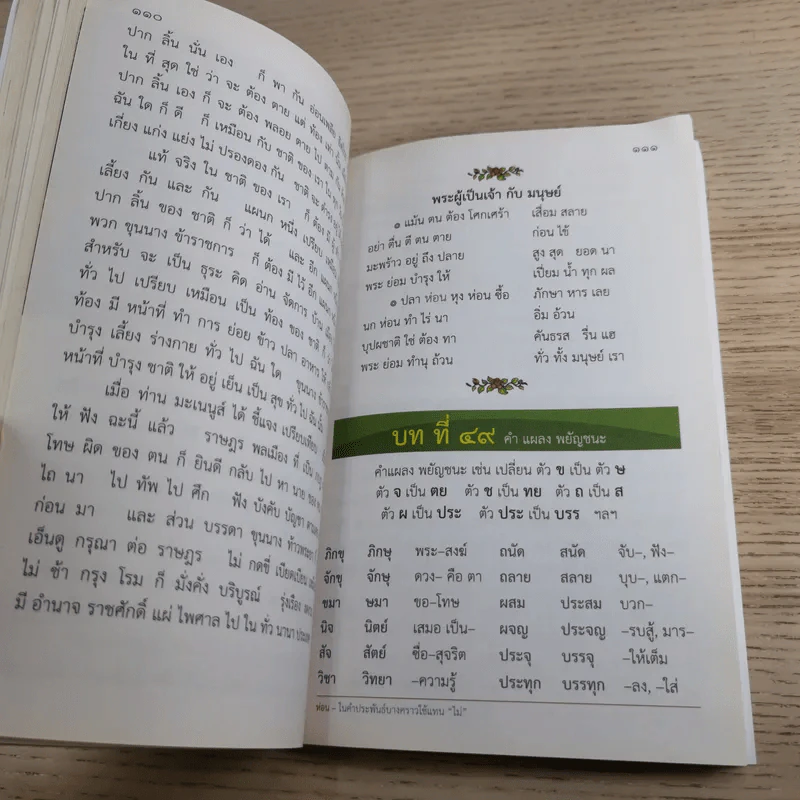 ๑๑๐
ปาก ลิ้น นั่น เอง ก็ พา กัน อ่อนเพลีย
ใน ที่ สุด ใช่ ว่า จะ ต้อง ตาย แต่ ท้อง
ปาก ลิ้น เอง ก็ จะ ต้อง พลอย ตาย ไป ตาม
ฉัน ใด ก็ ดี ก็ เหมือน กับ ชาติ ของ เรา
เกี่ยง แก่ง แย่ง ไม่ ปรองดอง กัน ชาติ จะ
แท้ จริง ใน ชาติ ของ เรา ก็ ต้อง มี
เลี้ยง กัน และ กัน แผนก หนึ่ง เปรียบ
ปาก ลิ้น ของ ชาติ ก็ ว่า ได้ และ อีก
พวก ขุนนาง ข้าราชการ ก็ ต้อง มี ไว้ อีก
สำหรับ จะ เป็น ธุระ คิด อ่าน จัดการ บ้าน
ทั่ว ไป เปรียบ เหมือน เป็น ท้อง ของ ชาติ
ท้อง มี หน้าที่ ทำ การ ย่อย ข้าว ปลา อาหาร
บำรุง เลี้ยง ร่างกาย ทั่ว ไป ฉัน ใด ขุนนาง
หน้าที่ บำรุง ชาติ ให้ อยู่ เย็น เป็น สุข ทั่ว ไป
เมื่อ ท่าน มะเนนูส์ ได้ ชี้แจง เปรียบเทียบ
ให้ ฟัง ฉะนี้ แล้ว ราษฎร พลเมือง ที่ เป็น
โทษ ผิด ของ ตน ก็ ยินดี กลับ ไป หา นาย ของ
ไถ นา ไป ทัพ ไป ศึก ฟัง บังคับ บัญชา
ก่อน มา และ ส่วน บรรดา ขุนนาง
เอ็นดู กรุณา ต่อ ราษฎร ไม่ กดขี่ เบียดเบียน
ไม่ ช้า กรุง โรม ก็ มั่งคั่ง บริบูรณ์ รุ่งเรือง
มี อำนาจ ราชศักดิ์ แผ่ ไพศาล ไป ใน ทั่ว นานา
๑๑๑
พระผู้เป็นเจ้า กับ มนุษย์
๏ แม้น ตน ต้อง โศกเศร้า เสื่อม สลาย
อย่า ตื่น ตี ตน ตาย ก่อน ไข้
มะพร้าว อยู่ ถึง ปลาย สูง สุด ยอด นา
พระ ย่อม บำรุง ให้ เปี่ยม น้ำ ทุก ผล
๏ ปลา ห่อน หุง ห่อน ซื้อ ภักษา หาร เลย
นก ห่อน ทำ ไร่ นา อิ่ม อ้วน
บุปผชาติ ใช่ ต้อง ทา คันธรส รื่น แฮ
พระ ย่อม ทำนุ ถ้วน ทั่ว ทั้ง มนุษย์ เรา
บท ที่ ๔๙ คำ แผลง พยัญชนะ
คำแผลง พยัญชนะ เช่น เปลี่ยน ตัว ข เป็น ตัว ษ
ตัว จ เป็น ตย ตัว ช เป็น ทย ตัว ถ เป็น ส
ตัว ผ เป็น ประ ตัว ประ เป็น บรร ฯลฯ
ภิกขุ ภิกษุ พระ–สงฆ์ ถนัด สนัด จับ–, ฟัง–
จักขุ จักษุ ดวง– คือ ตา ถลาย สลาย บุบ–, แตก–
ขมา ษมา ขอ–โทษ ผสม ประสม บวก–
นิจ นิตย์ เสมอ เป็น– ผจญ ประจญ –รบสู้, มาร–
สัจ สัตย์ ซื่อ–สุจริต ประจุ บรรจุ –ให้เต็ม
วิชา วิทยา –ความรู้ ประทุก บรรทุก –ลง, –ใส่
ห่อน – ในคำประพันธ์บางคราวใช้แทน “ไม่”